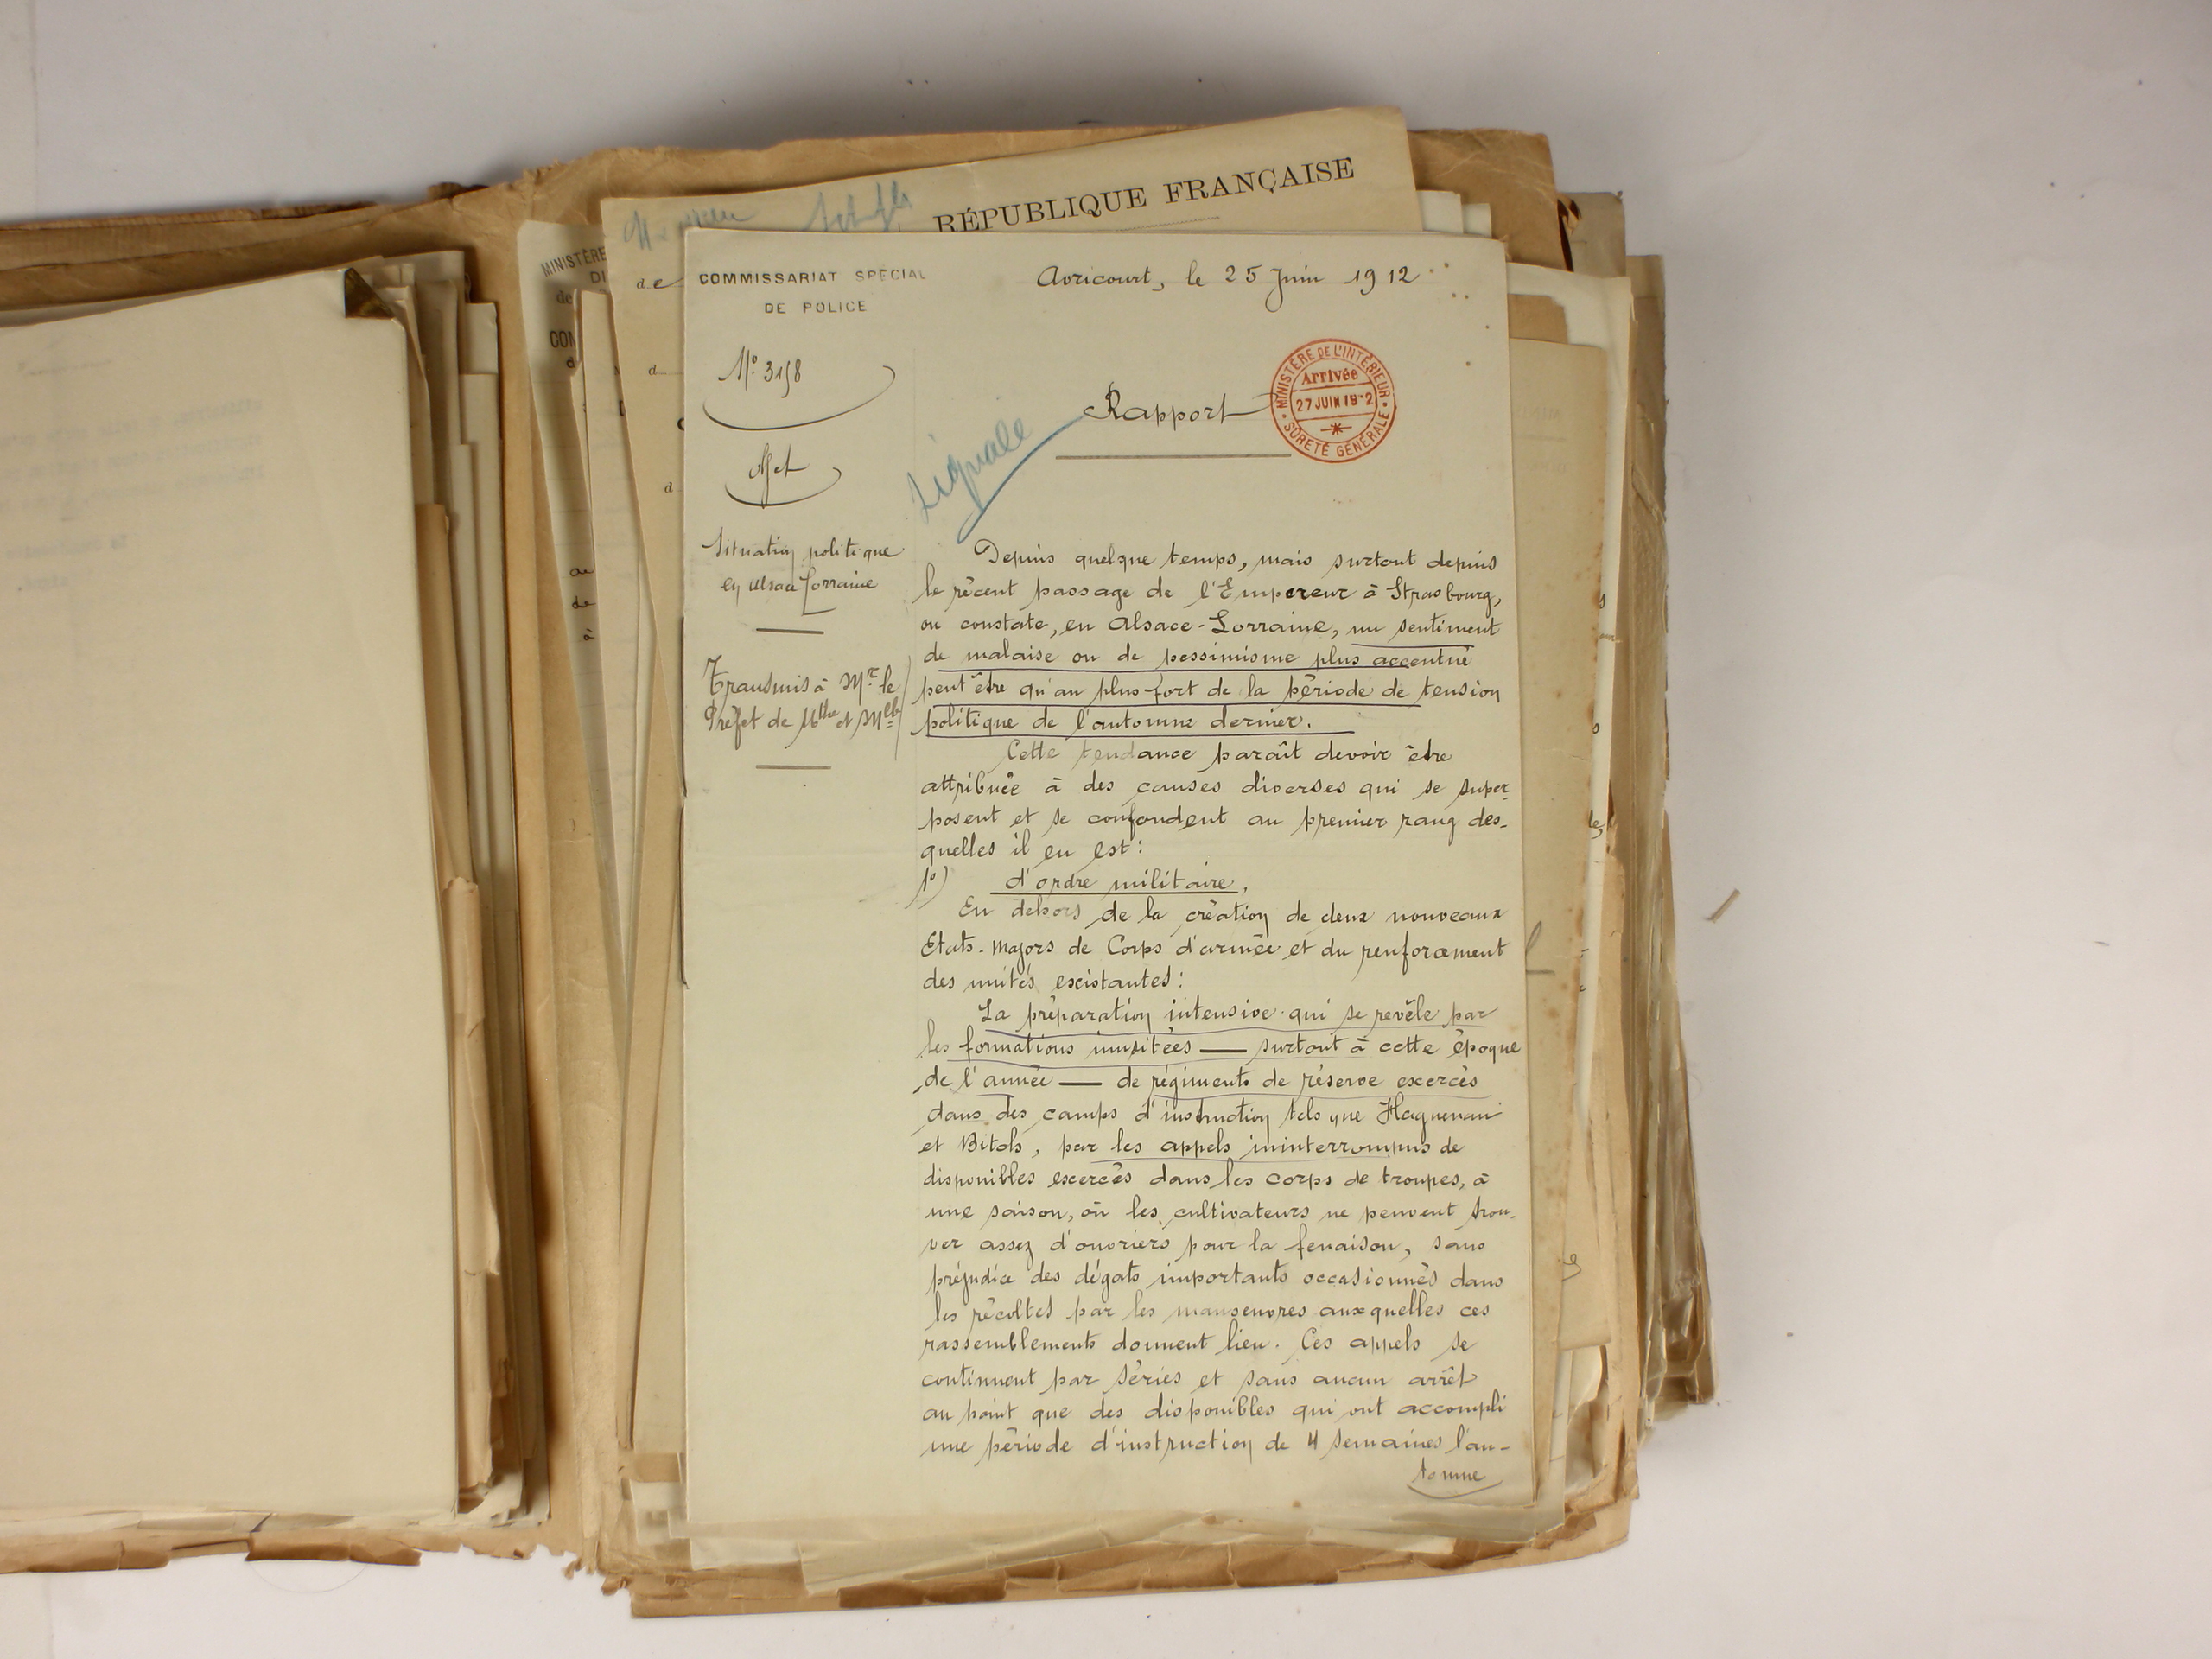 RÉPUBLIQUE FRANÇAISE
MINISTÈRE
DI
de
COMMISSARIAT SPÉCIAL
DE POLICE
Avricourt, le 25 Juin 1912
N° 3158
Objet
Situation politique
en Alsace Lorraine
Transmis à Mr. le
Préfet de Mthe et Mlle
Signalé
Rapport
MINISTÈRE DE L'INTÉRIEUR
Arrivée
27 JUIN 19 2
SÛRETÉ GÉNÉRALE
Depuis quelque temps, mais surtout depuis
le récent passage de l'Empereur à Strasbourg,
on constate, en Alsace-Lorraine, un sentiment
de malaise ou de pessimisme plus accentué
peut être qu'au plus fort de la période de tension
politique de l'automne dernier.
Cette tendance paraît devoir être
attribuée à des causes diverses qui se super-
posent et se confondent au premier rang des-
quelles il en est :
1°) d'ordre militaire,
En dehors de la création de deux nouveaux
Etats-Majors de Corps d'armée et du renforcement
des unités existantes :
La préparation intensive qui se revèle par
les formations inusitées — surtout à cette époque
de l'année — de régiments de réserve exercés
dans des camps d'instruction tels que Haguenau
et Bitch, par les appels ininterrompus de
disponibles exercés dans les corps de troupes, à
une saison, où les cultivateurs ne peuvent trou-
ver assez d'ouvriers pour la fenaison, sans
préjudice des dégats importants occasionnés dans
les récoltes par les manoeuvres auxquelles ces
rassemblements donnent lieu. Ces appels se
continuent par séries et sans aucun arrêt
au point que des disponibles qui ont accompli
une période d'instruction de 4 semaines l'au-
tomne